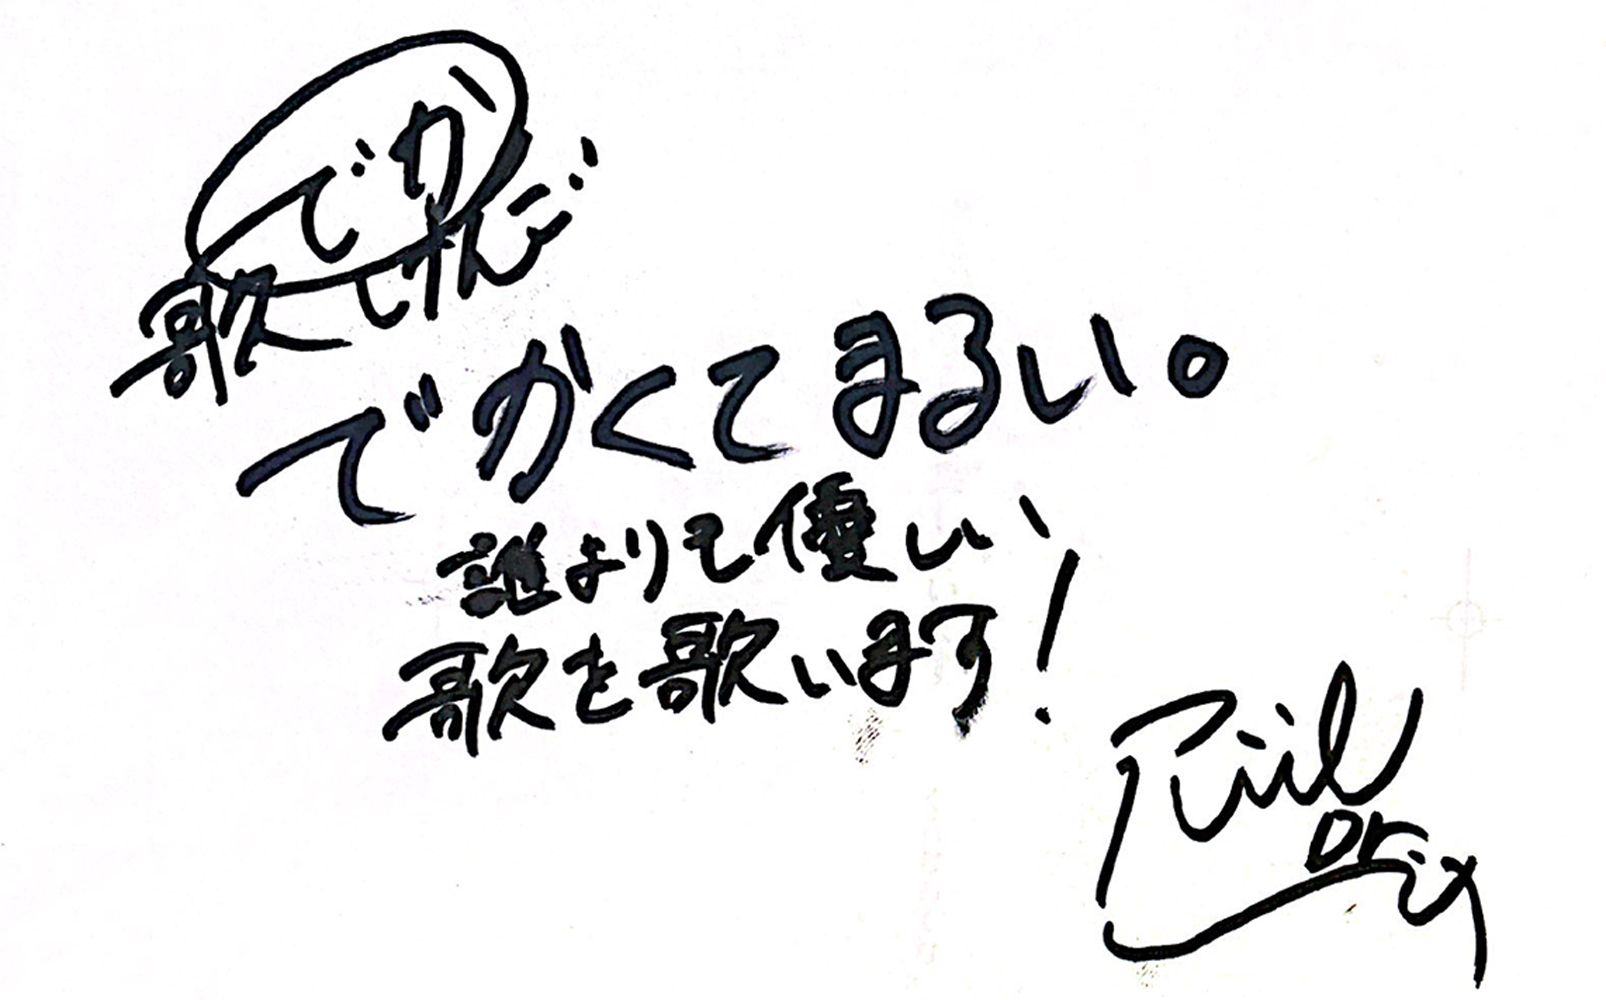 でか
歌ですけど
でかくてまるい。
誰よりも優しい
歌を歌います!